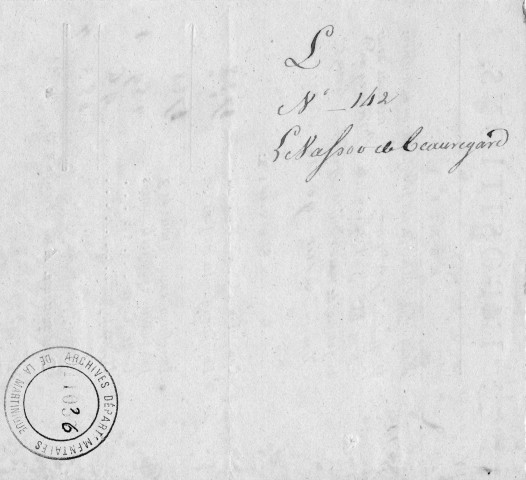 L
N° 142
LeVassor de Beauregard
ARCHIVES DÉPARTEMENTALES DE LA MARTINIQUE
1036